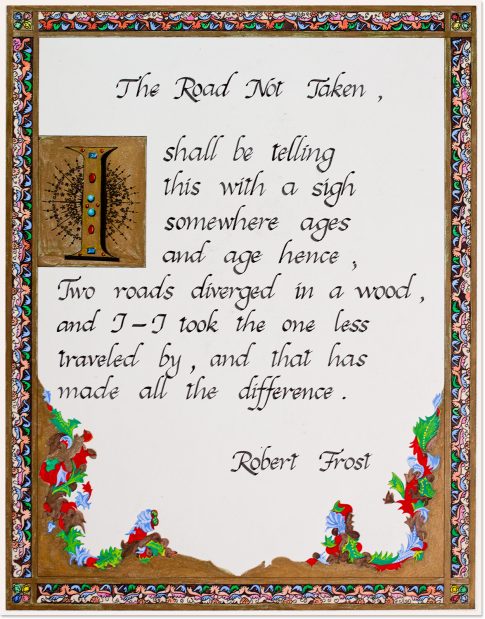 The Road Not Taken,
I shall be telling
this with a sigh
somewhere ages
and age hence,
Two roads diverged in a wood,
and I–I took the one less
traveled by, and that has
made all the difference.
Robert Frost